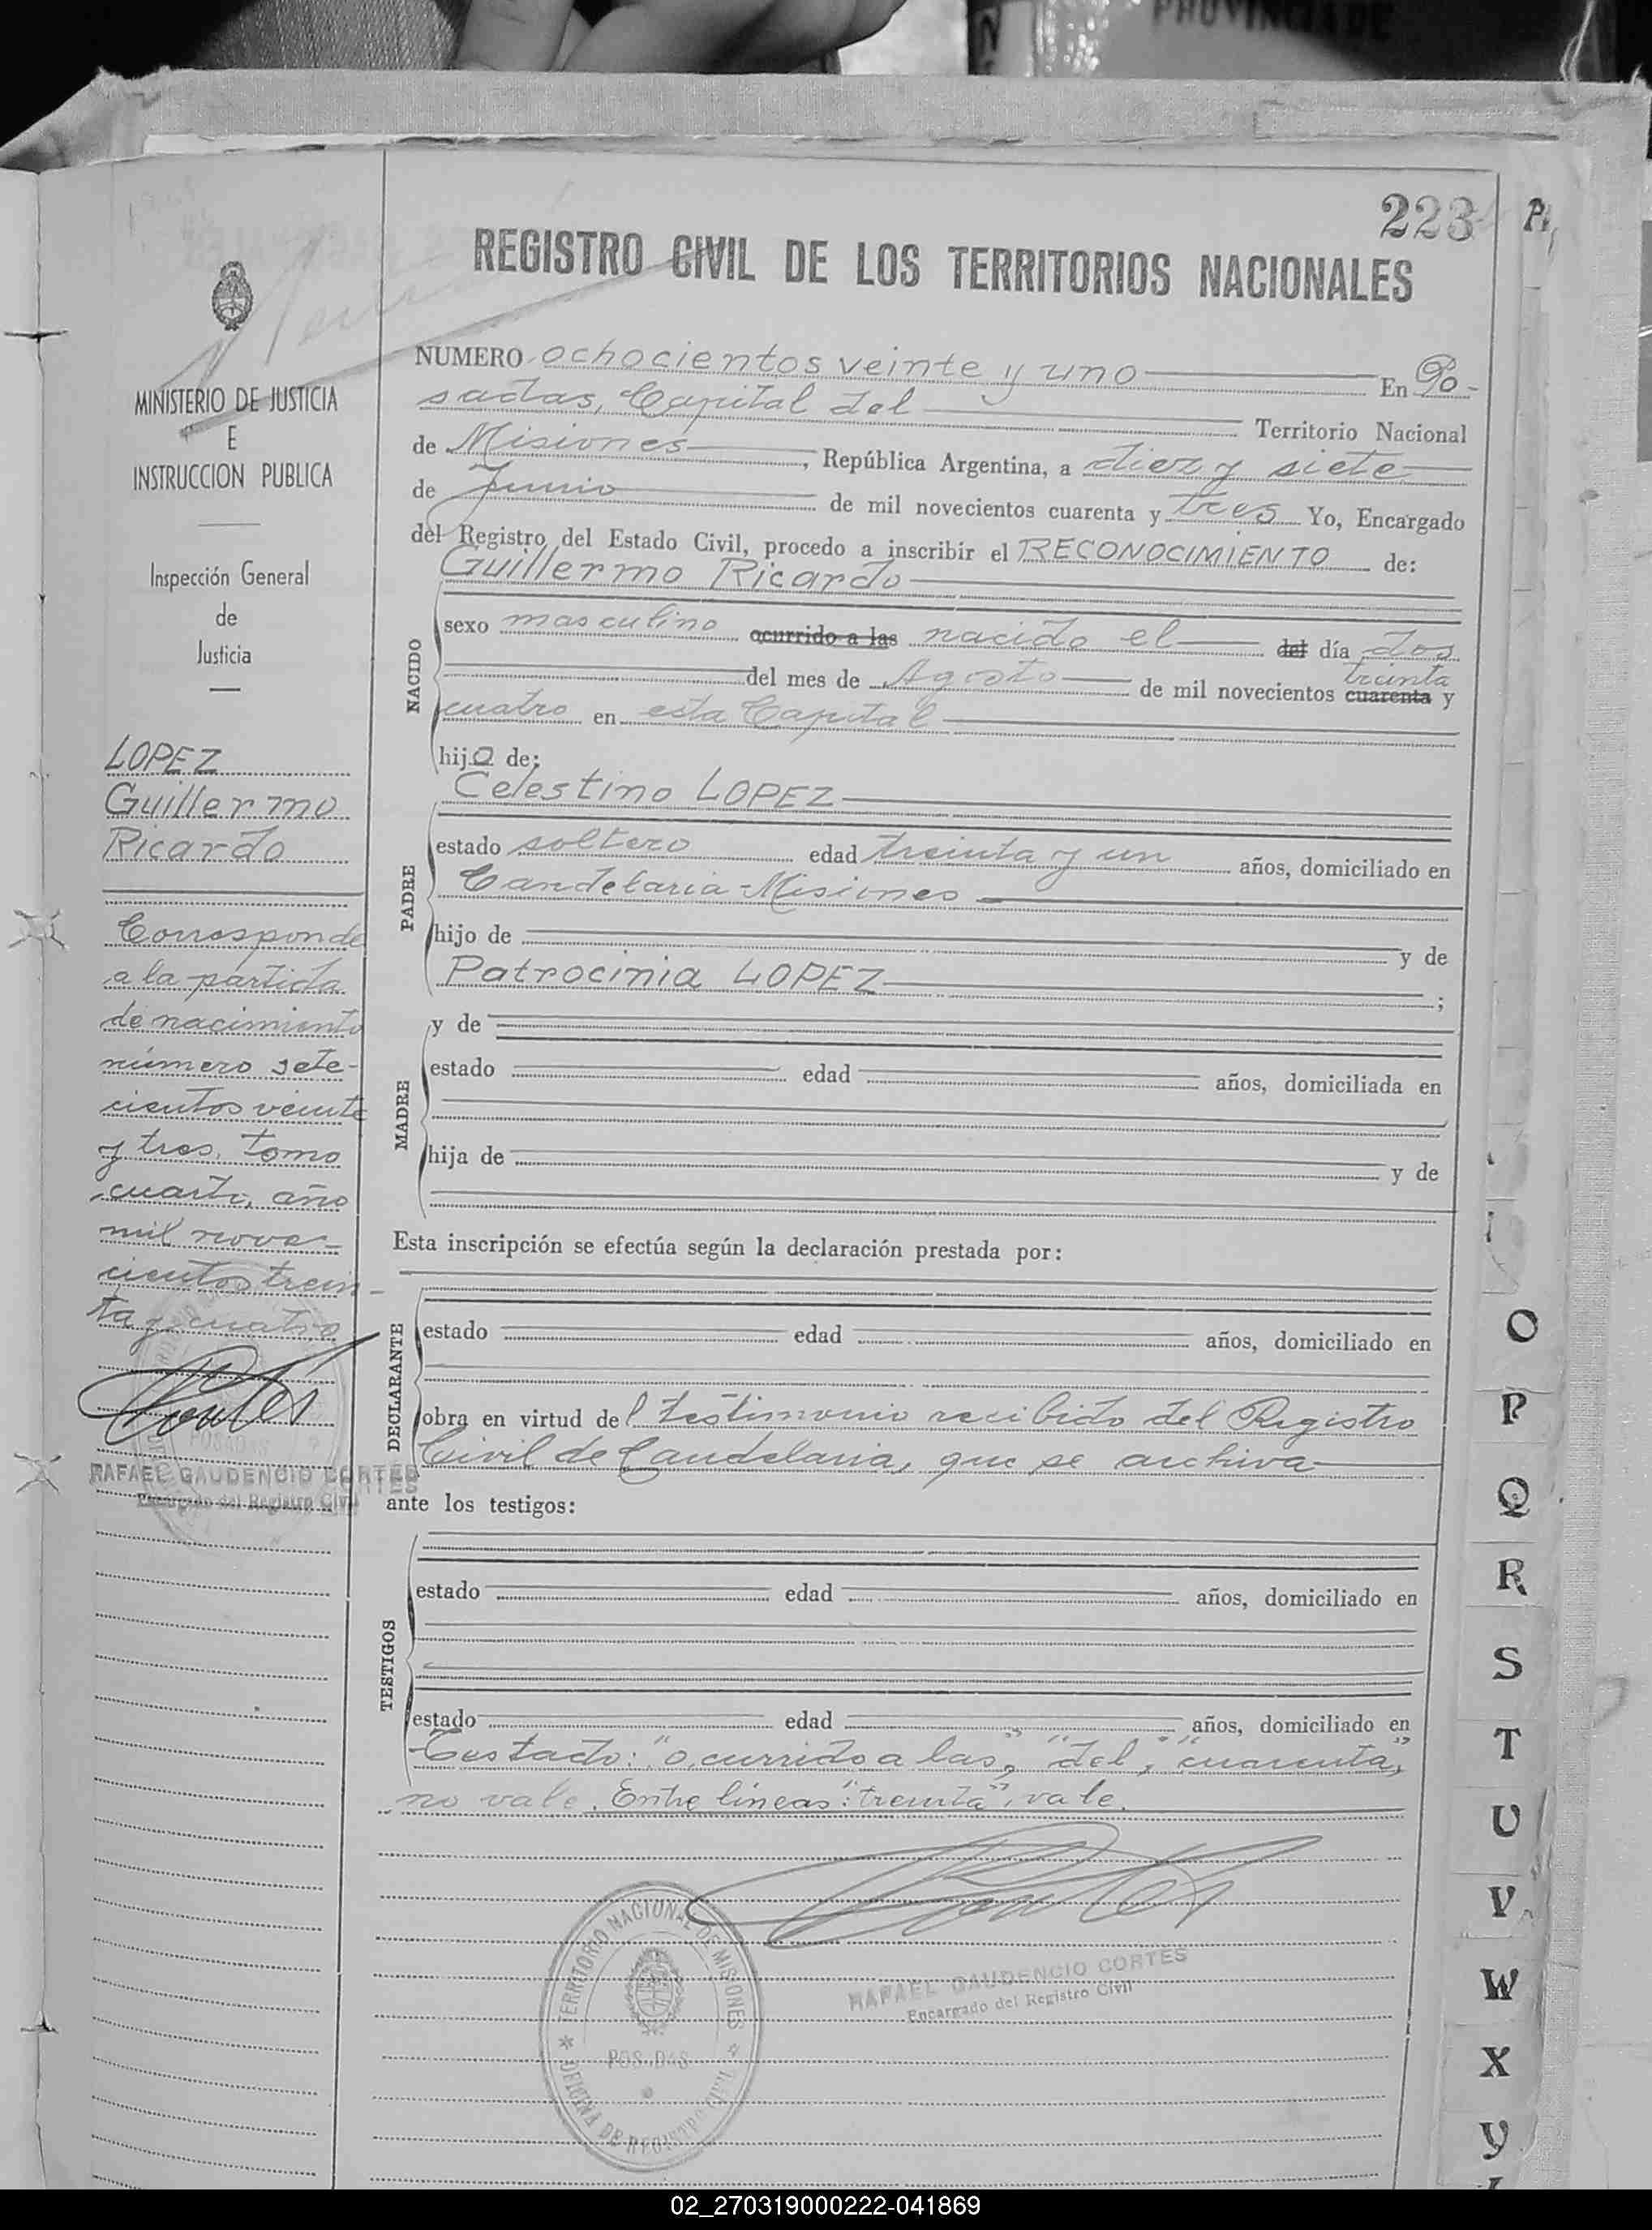 PROVINCIA DE
223
REGISTRO CIVIL DE LOS TERRITORIOS NACIONALES
MINISTERIO DE JUSTICIA
E
INSTRUCCION PUBLICA
Inspección General
de
Justicia
LOPEZ
Guillermo
Ricardo
Corresponde
a la partida
de nacimiento
número sete-
cientos veinte
y tres, tomo
cuarto, año
mil nove-
cientos trein-
ta y cuatro
POSADAS
RAFAEL GAUDENCIO CORTES
Encargado del Registro Civil
NUMERO ochocientos veinte y uno En Po-
sadas, Capital del Territorio Nacional
de Misiones, República Argentina, a diez y siete
de Junio de mil novecientos cuarenta y tres Yo, Encargado
del Registro del Estado Civil, procedo a inscribir el RECONOCIMIENTO de:
Guillermo Ricardo
NACIDO
sexo masculino ocurrido a las nacido el del día dos
treinta
del mes de Agosto de mil novecientos cuarenta y
cuatro en esta Capital
hijo de:
PADRE
Celestino LOPEZ
estado soltero edad treinta y un años, domiciliado en
Candelaria-Misiones
hijo de y de
Patrocinia LOPEZ ;
MADRE
y de
estado edad años, domiciliada en
hija de y de
Esta inscripción se efectúa según la declaración prestada por:
DECLARANTE
estado edad años, domiciliado en
obra en virtud del testimonio recibido del Registro
Civil de Candelaria, que se archiva
ante los testigos:
TESTIGOS
estado edad años, domiciliado en
estado edad años, domiciliado en
Testado: "ocurrido a las", "del", "cuarenta",
no vale. Entre líneas: "treinta", vale.
TERRITORIO NACIONAL DE MISIONES
POSADAS
OFICINA DE REGISTRO CIVIL
RAFAEL GAUDENCIO CORTES
Encargado del Registro Civil
O
P
Q
R
S
T
U
V
W
X
Y
02_270319000222-041869